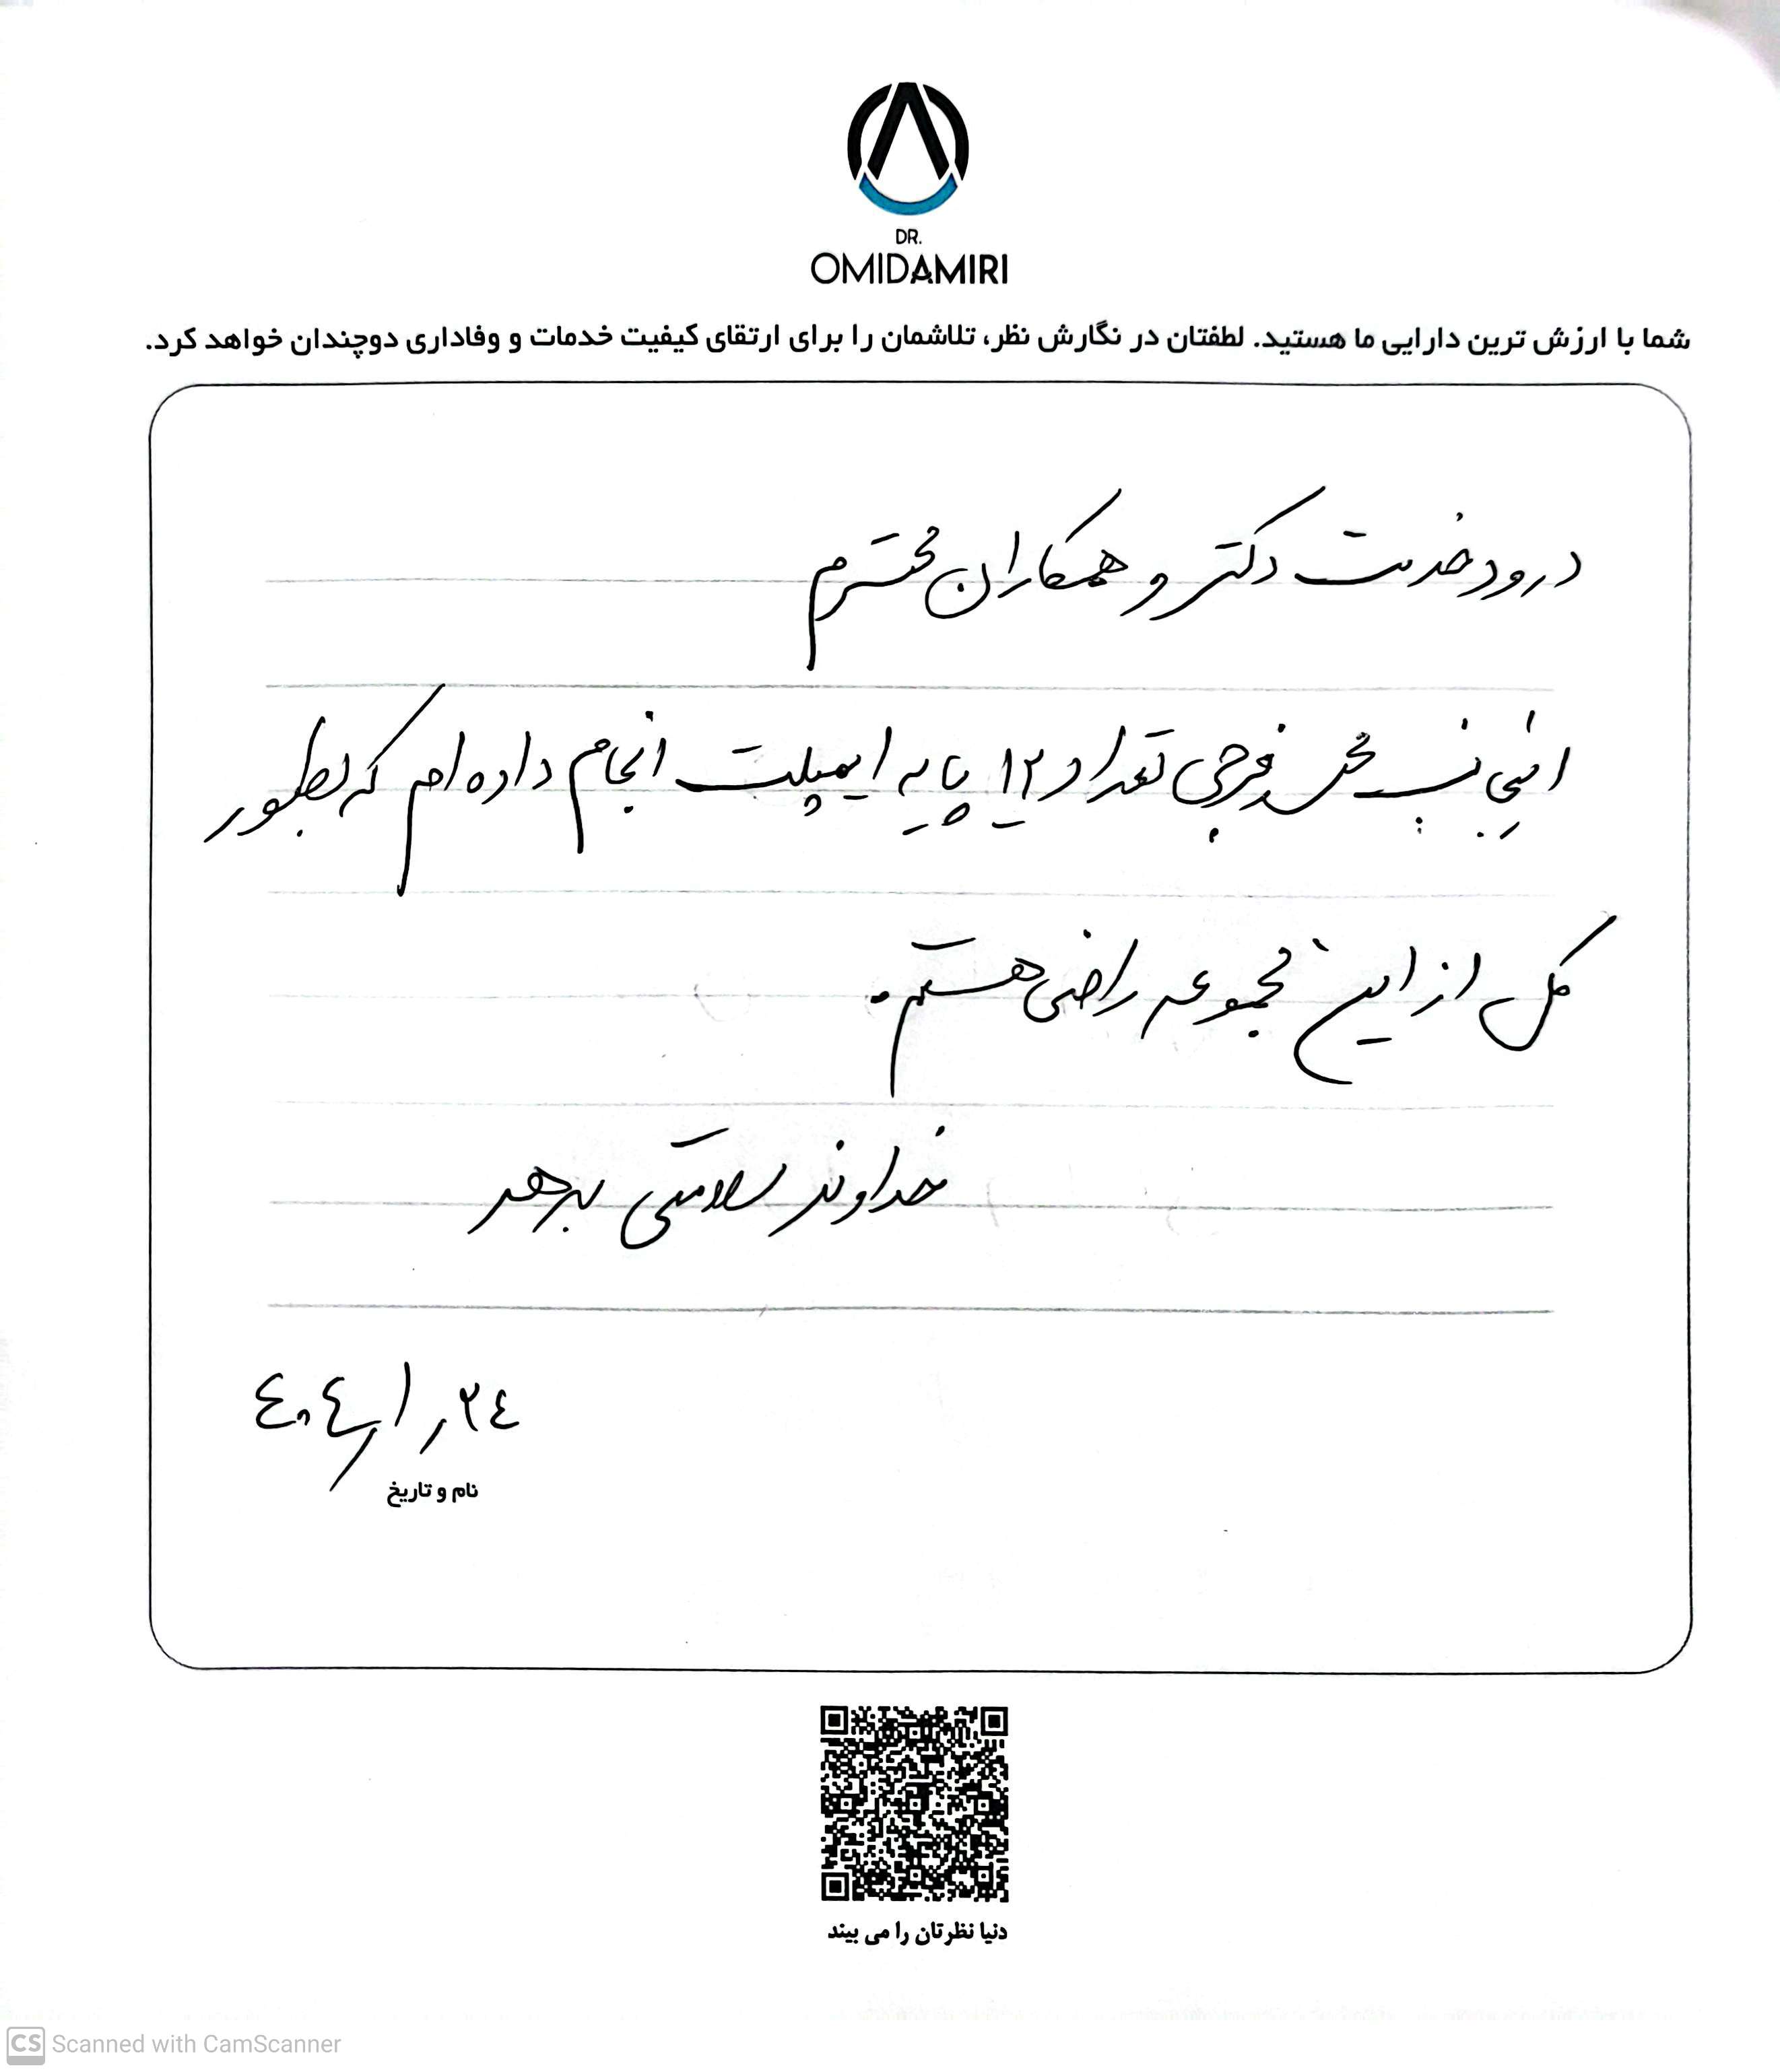 DR.
OMIDAMIRI
شما با ارزش ترین دارایی ما هستید. لطفتان در نگارش نظر، تلاشمان را برای ارتقای کیفیت خدمات و وفاداری دوچندان خواهد کرد.
درود خدمت دکتر و همکاران محترم
اینجانب محسن فرجی تعداد ۱۲ پایه ایمپلنت انجام داده ام که بطور
کل از این مجموعه راضی هستم.
خداوند سلامتی بدهد
۴۰۴/۱/۲۴
نام و تاریخ
دنیا نظرتان را می بیند
CS Scanned with CamScanner